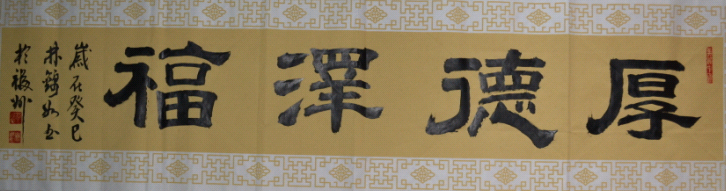 厚德澤福
歲在癸巳
林錦
書
於福州